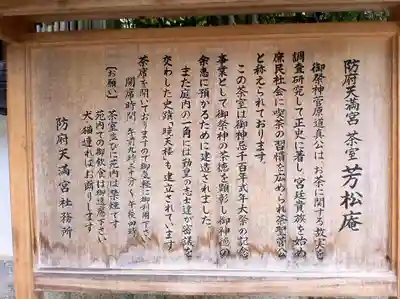 防府天満宮 茶室 芳松庵
御祭神菅原道真公は、お茶に関する故実を
調査研究して正史に著し、宮廷貴族を始め
庶民社会に喫茶の習慣を広められ茶聖菅公
と称えられております。
この茶室は御神忌千百年式年大祭の記念
事業として御祭神の茶徳を顕彰し御神徳の
余恵に預かるために建造されました。
また庭内の一角には勤皇の志士達が密議を
交わした史蹟「暁天楼」も建立されています
茶席を開いておりますので御気軽に御利用下さい
開席時間 午前九時三十分〜午後四時
〔お願い〕茶室並びに苑内は禁煙です
苑内での御飲食は御遠慮下さい
犬猫連れはお断りします
防府天満宮社務所